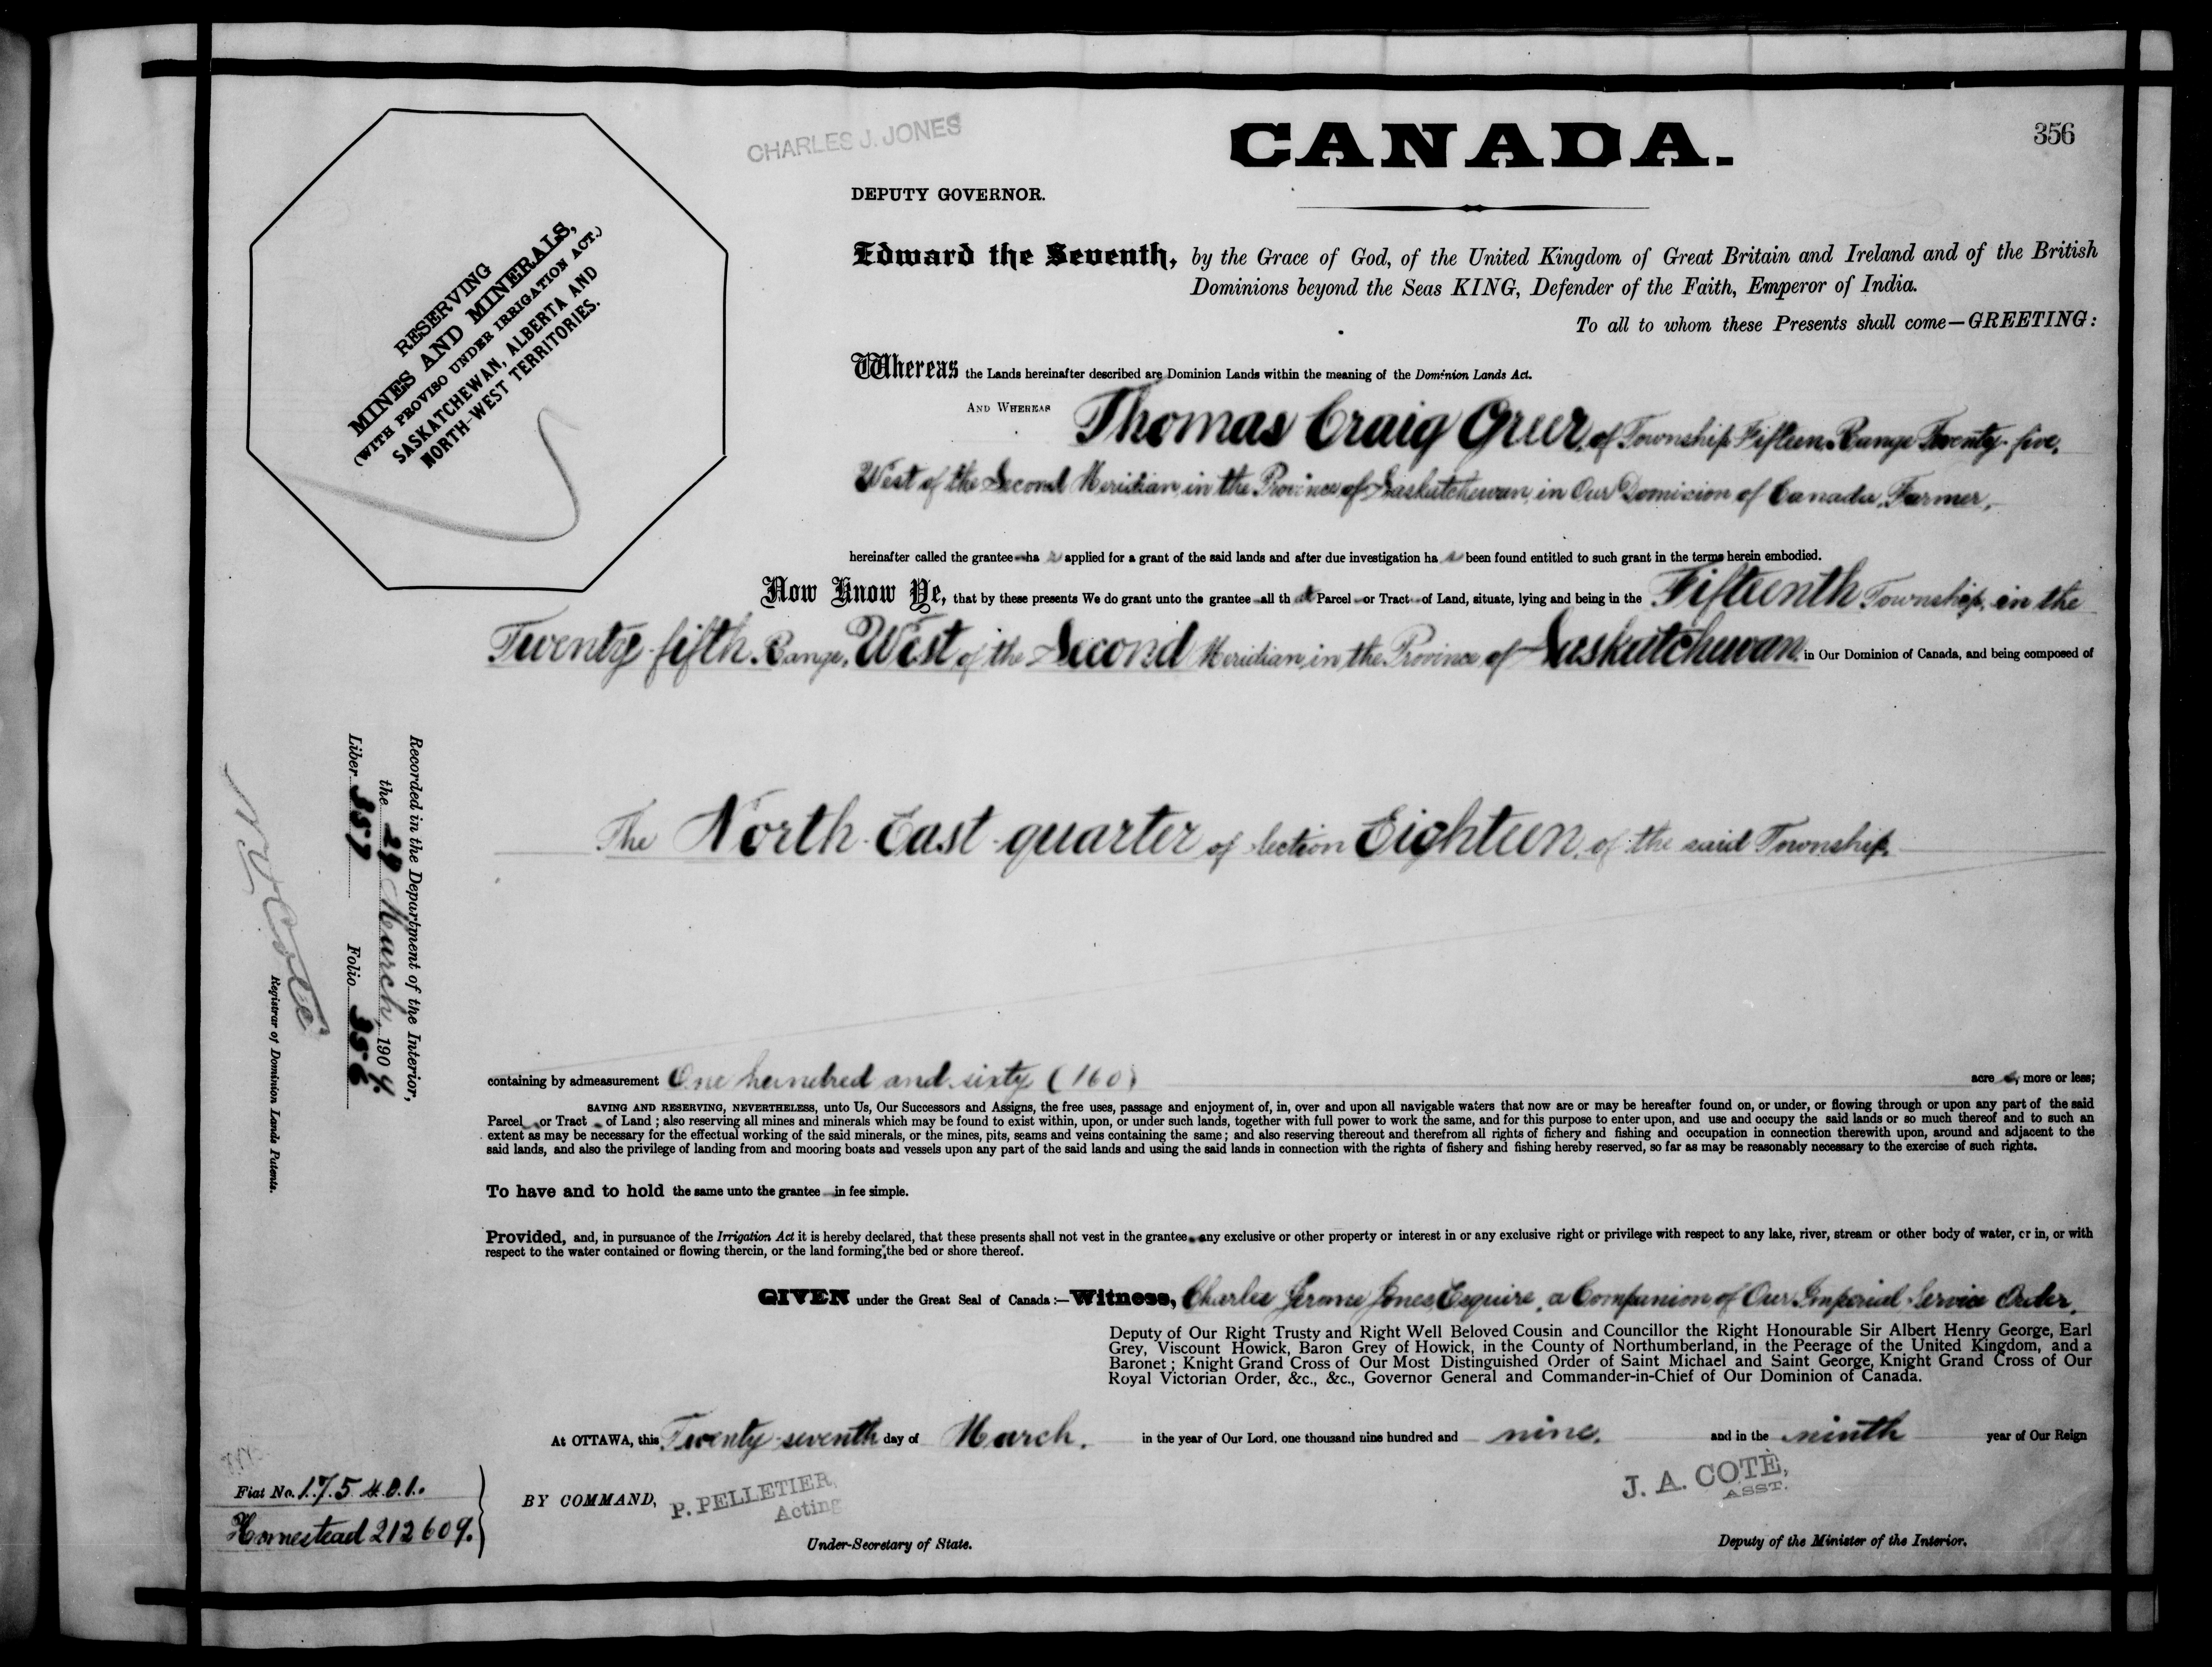 356
CHARLES J. JONES
CANADA.
DEPUTY GOVERNOR.
RESERVING
MINES AND MINERALS,
(WITH PROVISO UNDER IRRIGATION ACT.)
SASKATCHEWAN, ALBERTA AND
NORTH-WEST TERRITORIES.
Edward the Seventh, by the Grace of God, of the United Kingdom of Great Britain and Ireland and of the British
Dominions beyond the Seas KING, Defender of the Faith, Emperor of India.
To all to whom these Presents shall come—GREETING:
Whereas the Lands hereinafter described are Dominion Lands within the meaning of the Dominion Lands Act.
AND WHEREAS Thomas Craig Greer, of Township Fifteen, Range Twenty-five,
West of the Second Meridian, in the Province of Saskatchewan, in Our Dominion of Canada, Farmer,
hereinafter called the grantee ha s applied for a grant of the said lands and after due investigation ha s been found entitled to such grant in the terms herein embodied.
Now Know Ye, that by these presents We do grant unto the grantee all th at Parcel or Tract of Land, situate, lying and being in the Fifteenth Township, in the
Twenty-fifth Range, West of the Second Meridian, in the Province of Saskatchewan, in Our Dominion of Canada, and being composed of
The North-East quarter of Section Eighteen, of the said Township,
containing by admeasurement One hundred and sixty (160) acre s, more or less;
SAVING AND RESERVING, NEVERTHELESS, unto Us, Our Successors and Assigns, the free uses, passage and enjoyment of, in, over and upon all navigable waters that now are or may be hereafter found on, or under, or flowing through or upon any part of the said
Parcel or Tract of Land; also reserving all mines and minerals which may be found to exist within, upon, or under such lands, together with full power to work the same, and for this purpose to enter upon, and use and occupy the said lands or so much thereof and to such an
extent as may be necessary for the effectual working of the said minerals, or the mines, pits, seams and veins containing the same; and also reserving thereout and therefrom all rights of fichery and fishing and occupation in connection therewith upon, around and adjacent to the
said lands, and also the privilege of landing from and mooring boats and vessels upon any part of the said lands and using the said lands in connection with the rights of fishery and fishing hereby reserved, so far as may be reasonably necessary to the exercise of such rights.
To have and to hold the same unto the grantee in fee simple.
Provided, and, in pursuance of the Irrigation Act it is hereby declared, that these presents shall not vest in the grantee any exclusive or other property or interest in or any exclusive right or privilege with respect to any lake, river, stream or other body of water, or in, or with
respect to the water contained or flowing therein, or the land forming the bed or shore thereof.
GIVEN under the Great Seal of Canada:—Witness, Charles Jerome Jones Esquire, a Companion of Our Imperial Service Order,
Deputy of Our Right Trusty and Right Well Beloved Cousin and Councillor the Right Honourable Sir Albert Henry George, Earl
Grey, Viscount Howick, Baron Grey of Howick, in the County of Northumberland, in the Peerage of the United Kingdom, and a
Baronet; Knight Grand Cross of Our Most Distinguished Order of Saint Michael and Saint George, Knight Grand Cross of Our
Royal Victorian Order, &c., &c., Governor General and Commander-in-Chief of Our Dominion of Canada.
At OTTAWA, this Twenty-seventh day of March, in the year of Our Lord, one thousand nine hundred and nine, and in the ninth year of Our Reign
BY COMMAND, P. PELLETIER,
Acting
Under-Secretary of State.
J. A. COTE,
ASST.
Deputy of the Minister of the Interior.
Fiat No. 175401.
Homestead 212609.
Recorded in the Department of the Interior,
the 29 March, 190 9.
Liber 357 Folio 356
N. O. Coté
Registrar of Dominion Lands Patents.